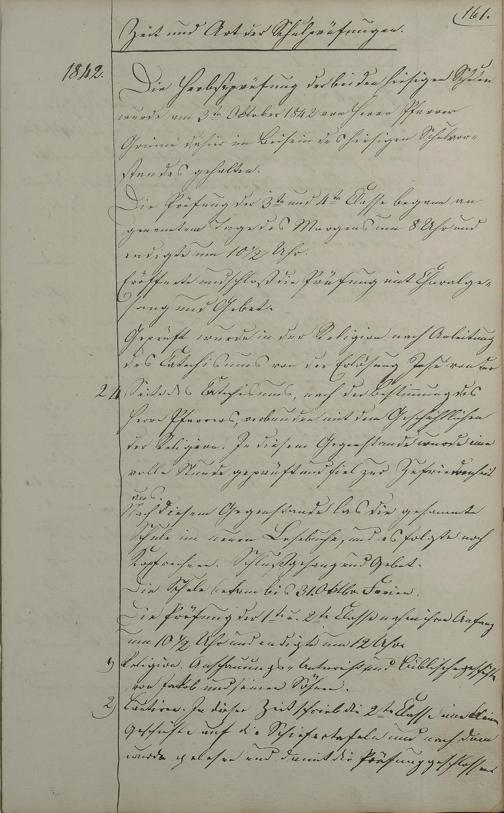 161.
Zeit und Art der Schulprüfungen.
1842.
Die Herbstprüfung der beiden hiesigen Schulen
wurde am 3ten Oktober 1842 von Herrn Pfarrer
Grimm dahier im Beisein des hiesigen Schulvor-
standes gehalten.
Die Prüfung der 3ten und 4ten Classe begann an
genanntem Tage des Morgens um 8 Uhr und
endigte um 10 1/2 Uhr.
Eröffnet und schloß die Prüfung mit Choralge-
sang und Gebet.
Geprüft wurde in der Religion nach Anleitung
des Catechismus von der Erlösung Jesu von der
24 Seite des Catechismus, nach der Bestimmung des
Herrn Pfarrers, verbunden mit dem Geschichtlichen
der Religion. In diesem Gegenstande wurde eine
volle Stunde geprüft und fiel zur Zufriedenheit
aus.
Nach diesem Gegenstande las die gesammte
Schule im neuen Lesebuche, und es folgte noch
Kopfrechnen. Schlußgesang und Gebet.
Die Schule bekam bis 31. Oktbr. Ferien.
Die Prüfung der 1ten u. 2ten Classe nahm ihren Anfang
um 10 1/2 Uhr und endigte um 12 Uhr.
1) Religion. Anschauungs-Unterricht und biblische Geschichte
von Jakob und seinen Söhnen.
2) In dieser Zeit schrieb die 2te Classe eine kleine
Geschichte auf die Schiefertafeln und nach dem
wurde gelesen und damit die Prüfung geschlossen